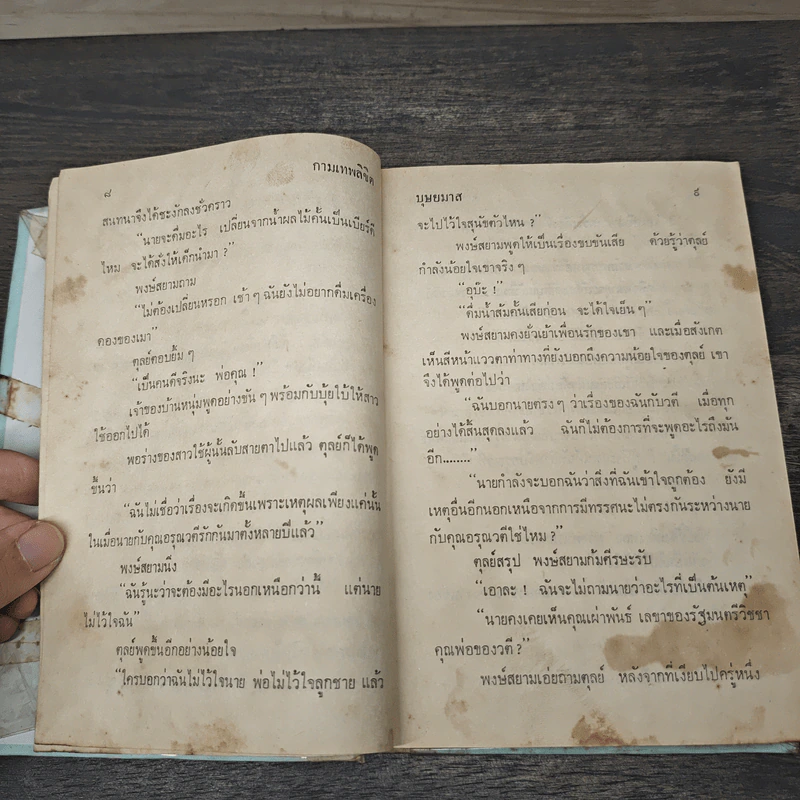 ๘
กามเทพลิขิต
สนทนาจึงได้ชะงักลงชั่วคราว
“นายจะดื่มอะไร เปลี่ยนจากน้ำผลไม้คั้นเป็นเบียร์ดี
ไหม จะได้สั่งให้เด็กนำมา ?”
พงษ์สยามถาม
“ไม่ต้องเปลี่ยนหรอก เช้า ๆ ฉันยังไม่อยากดื่มเครื่อง
ดองของเมา”
ตุลย์ตอบยิ้ม ๆ
“เป็นคนดีจริงนะ พ่อคุณ !”
เจ้าของบ้านหนุ่มพูดอย่างขัน ๆ พร้อมกับบุ้ยใบ้ให้สาว
ใช้ออกไปได้
พอร่างของสาวใช้ผู้นั้นลับสายตาไปแล้ว ตุลย์ก็ได้พูด
ขึ้นว่า
“ฉันไม่เชื่อว่าเรื่องจะเกิดขึ้นเพราะเหตุผลเพียงแค่นั้น
ในเมื่อนายกับคุณอรุณวตีรักกันมาตั้งหลายปีแล้ว”
พงษ์สยามนิ่ง
“ฉันรู้นะว่าจะต้องมีอะไรนอกเหนือกว่านี้ แต่นาย
ไม่ไว้ใจฉัน”
ตุลย์พูดขึ้นอีกอย่างน้อยใจ
“ใครบอกว่าฉันไม่ไว้ใจนาย พ่อไม่ไว้ใจลูกชาย แล้ว
บุษยมาส
๙
จะไปไว้ใจสุนัขตัวไหน ?”
พงษ์สยามพูดให้เป็นเรื่องขบขันเสีย ด้วยรู้ว่าตุลย์
กำลังน้อยใจเขาจริง ๆ
“อุบ๊ะ !”
“ดื่มน้ำส้มคั้นเสียก่อน จะได้ใจเย็น ๆ”
พงษ์สยามคงยั่วเย้าเพื่อนรักของเขา และเมื่อสังเกต
เห็นสีหน้าแววตาท่าทางที่ยังบอกถึงความน้อยใจของตุลย์ เขา
จึงได้พูดต่อไปว่า
“ฉันบอกนายตรง ๆ ว่าเรื่องของฉันกับวตี เมื่อทุก
อย่างได้สิ้นสุดลงแล้ว ฉันก็ไม่ต้องการที่จะพูดอะไรถึงมัน
อีก........”
“นายกำลังจะบอกฉันว่าสิ่งที่ฉันเข้าใจถูกต้อง ยังมี
เหตุอื่นอีกนอกเหนือจากการมีทรรศนะไม่ตรงกันระหว่างนาย
กับคุณอรุณวตีใช่ไหม ?”
ตุลย์สรุป พงษ์สยามก้มศีรษะรับ
“เอาละ ! ฉันจะไม่ถามนายว่าอะไรที่เป็นต้นเหตุ”
“นายคงเคยเห็นคุณเผ่าพันธ์ เลขาของรัฐมนตรีวิชชา
คุณพ่อของวตี ?”
พงษ์สยามเอ่ยถามตุลย์ หลังจากที่เงียบไปครู่หนึ่ง